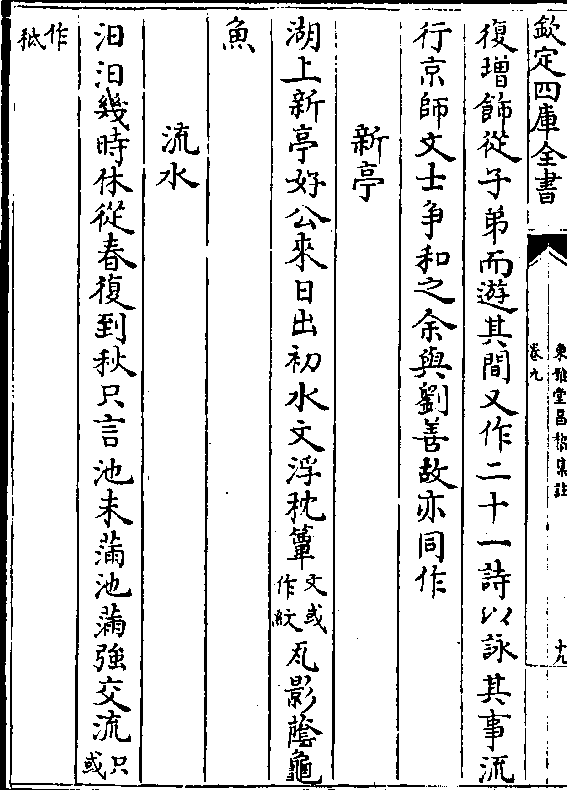 欽定四庫全書
東雅堂昌黎集註
卷九
十九
復增飾從子弟而遊其間又作二十一詩以詠其事流
行京師文士争和之余與劉善故亦同作
新亭
湖上新亭好公來日出初水文浮枕簟文或作紋瓦影䕃龜
魚
流水
汨汨幾時休從春復到秋只言池未滿池滿強交流只或
作秪